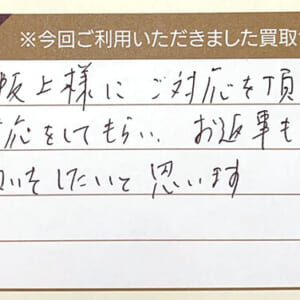 ※今回ご利用いただきました買取
坂上様に ご対応を頂
応をしてもらい、お返事も
いをしたいと思います